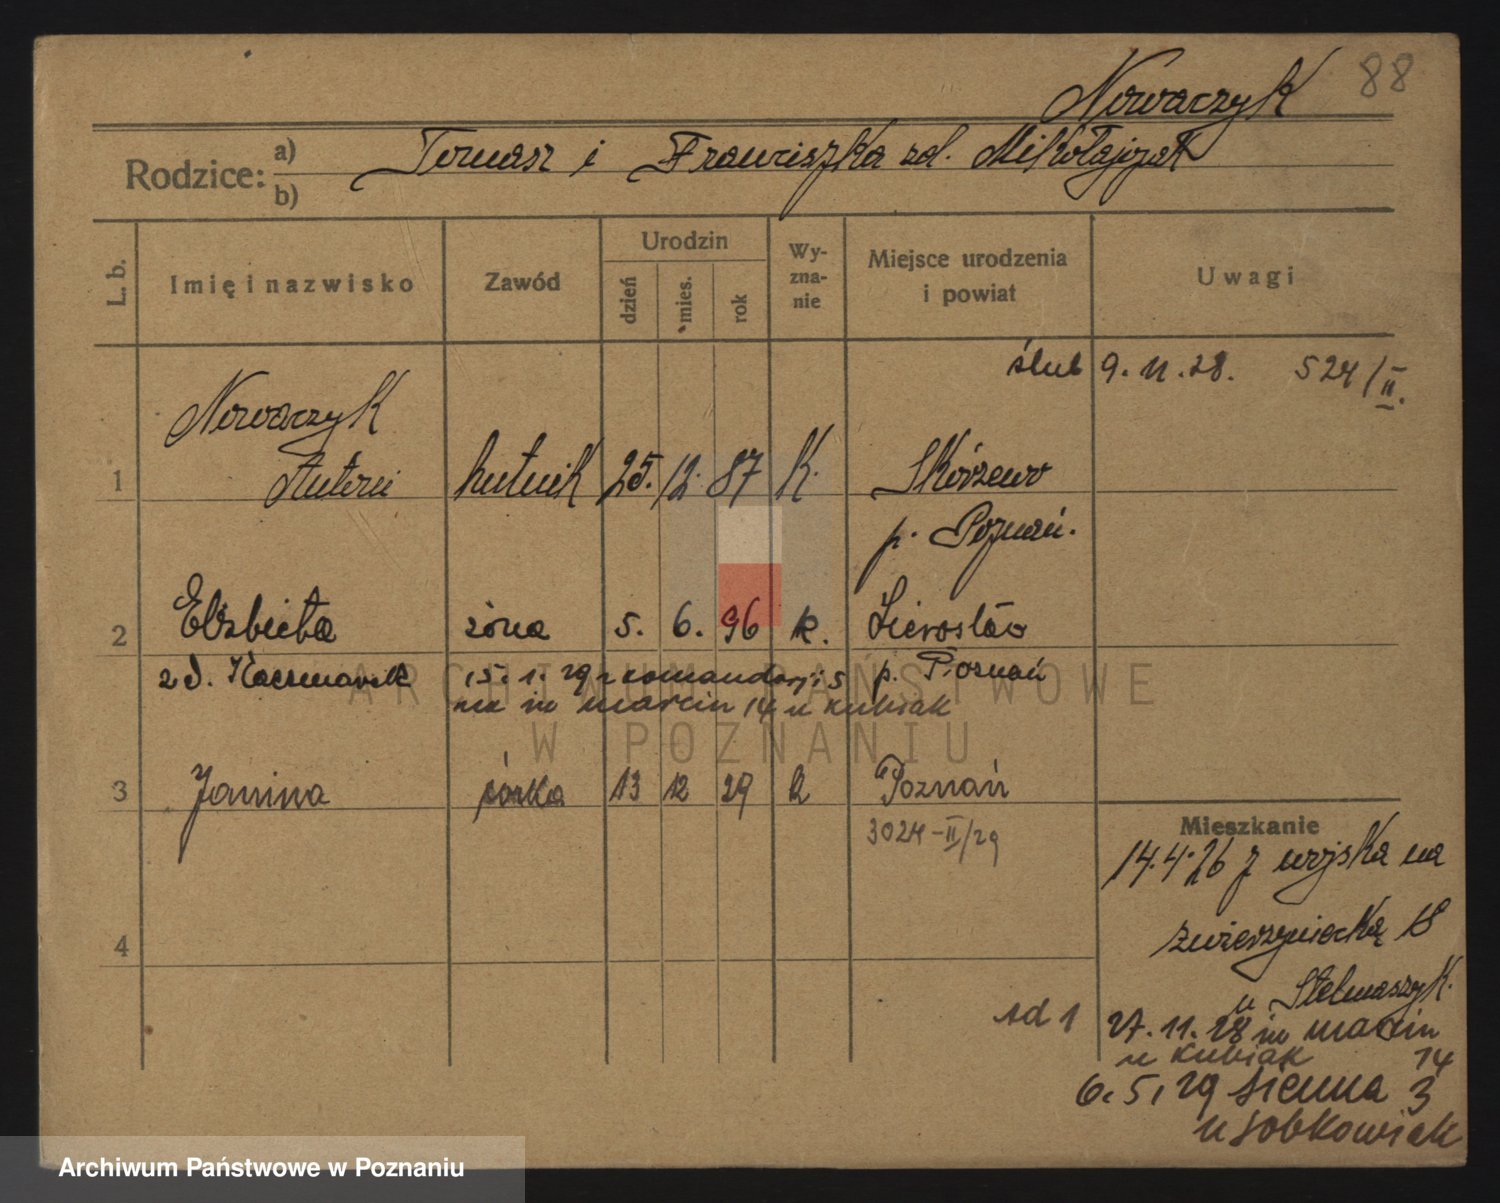 88
Nowaczyk
Rodzice: a) b)
Tomasz i Franciszka zd. Mikołajczak
L. b.
Imię i nazwisko
Zawód
Urodzin
dzień
mies.
rok
Wy-
zna-
nie
Miejsce urodzenia
i powiat
Uwagi
ślub 9.11.28. 524/II.
Nowaczyk
1 Antoni hutnik 25. 12. 87 K. Skórzewo
p. Poznań.
2 Elżbieta żona 5. 6. 96 k.
zd. Kaczmarek 15.1.29 z komandorji 5 p. Poznań
na św marcin 14 u kubiak
3 Janina córka 13 12 29 k Poznań
3024-II/29
Mieszkanie
14.4.26 z wojska na
4
zwierzyniecką 18
u Stelmaszyk.
ad 1 27.11.28 św marcin
u kubiak 14
6.5.29 sienna 3
u sobkowiak
ARCHIWUM PAŃSTWOWE
W POZNANIU
Archiwum Państwowe w Poznaniu